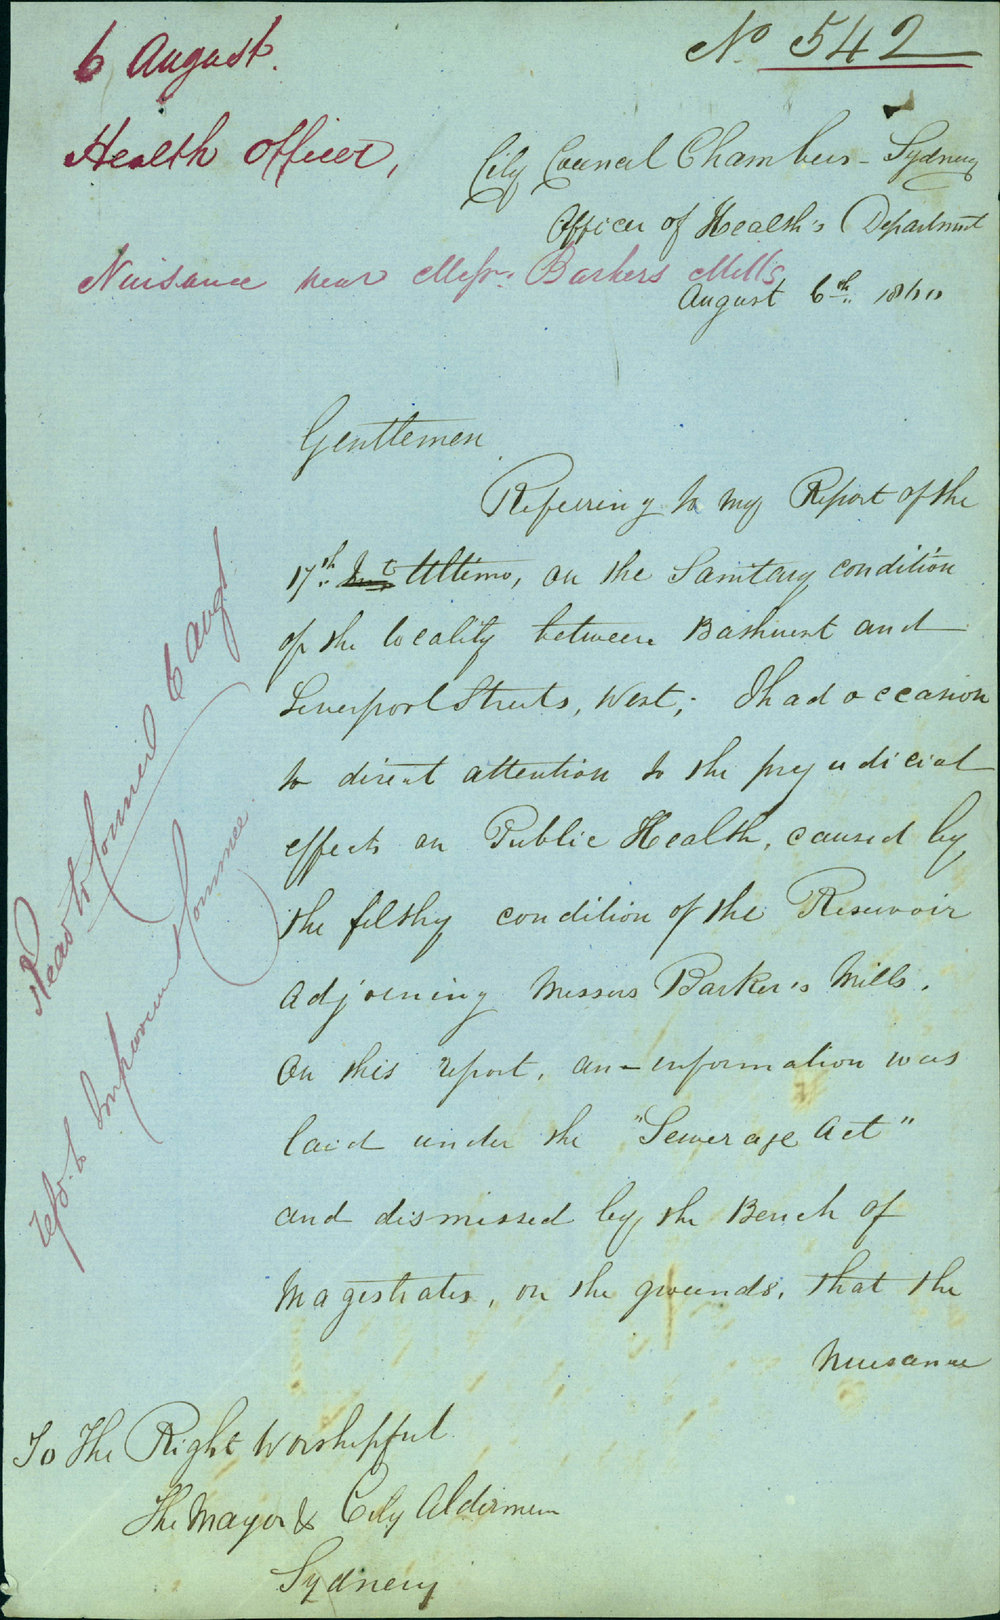 6 August.
No 542
Health Officer,
City Council Chambers - Sydney
Officer of Health's Department
Nuisance near Messrs. Barkers Mills
August 6th. 1860
Gentlemen
Referring to my Report of the
17th. Inst Ultimo, on the Sanitary condition
of the locality between Bathurst and
Liverpool Streets, West; I had occasion
to direct attention to the prejudicial
effects on Public Health, caused by
the filthy condition of the Reservoir
Adjoining Messrs Barker's Mills.
On this report, an information was
laid under the "Sewerage Act"
and dismissed by the Bench of
Magistrates, on the grounds, that the
Nuisance
Read to Council 6 Augst
Refd. to Improvement Commee.
To The Right Worshipful
The Mayor & City Aldermen
Sydney